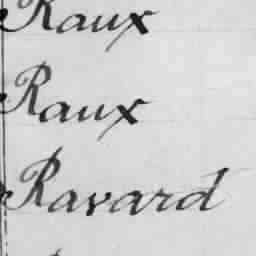 Raux
Raux
Ravard